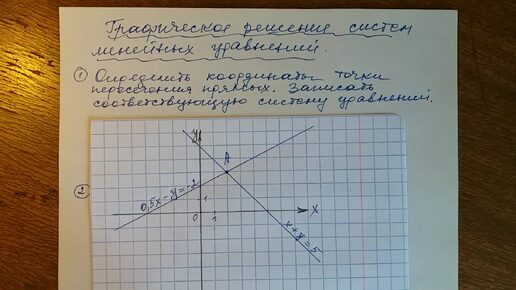 Графическое решение систем
линейных уравнений.
① Определить координаты точки
пересечения прямых. Записать
соответствующую систему уравнений.
y
A
②
0,5x-y=-2
1
x
0 1
x+y=5